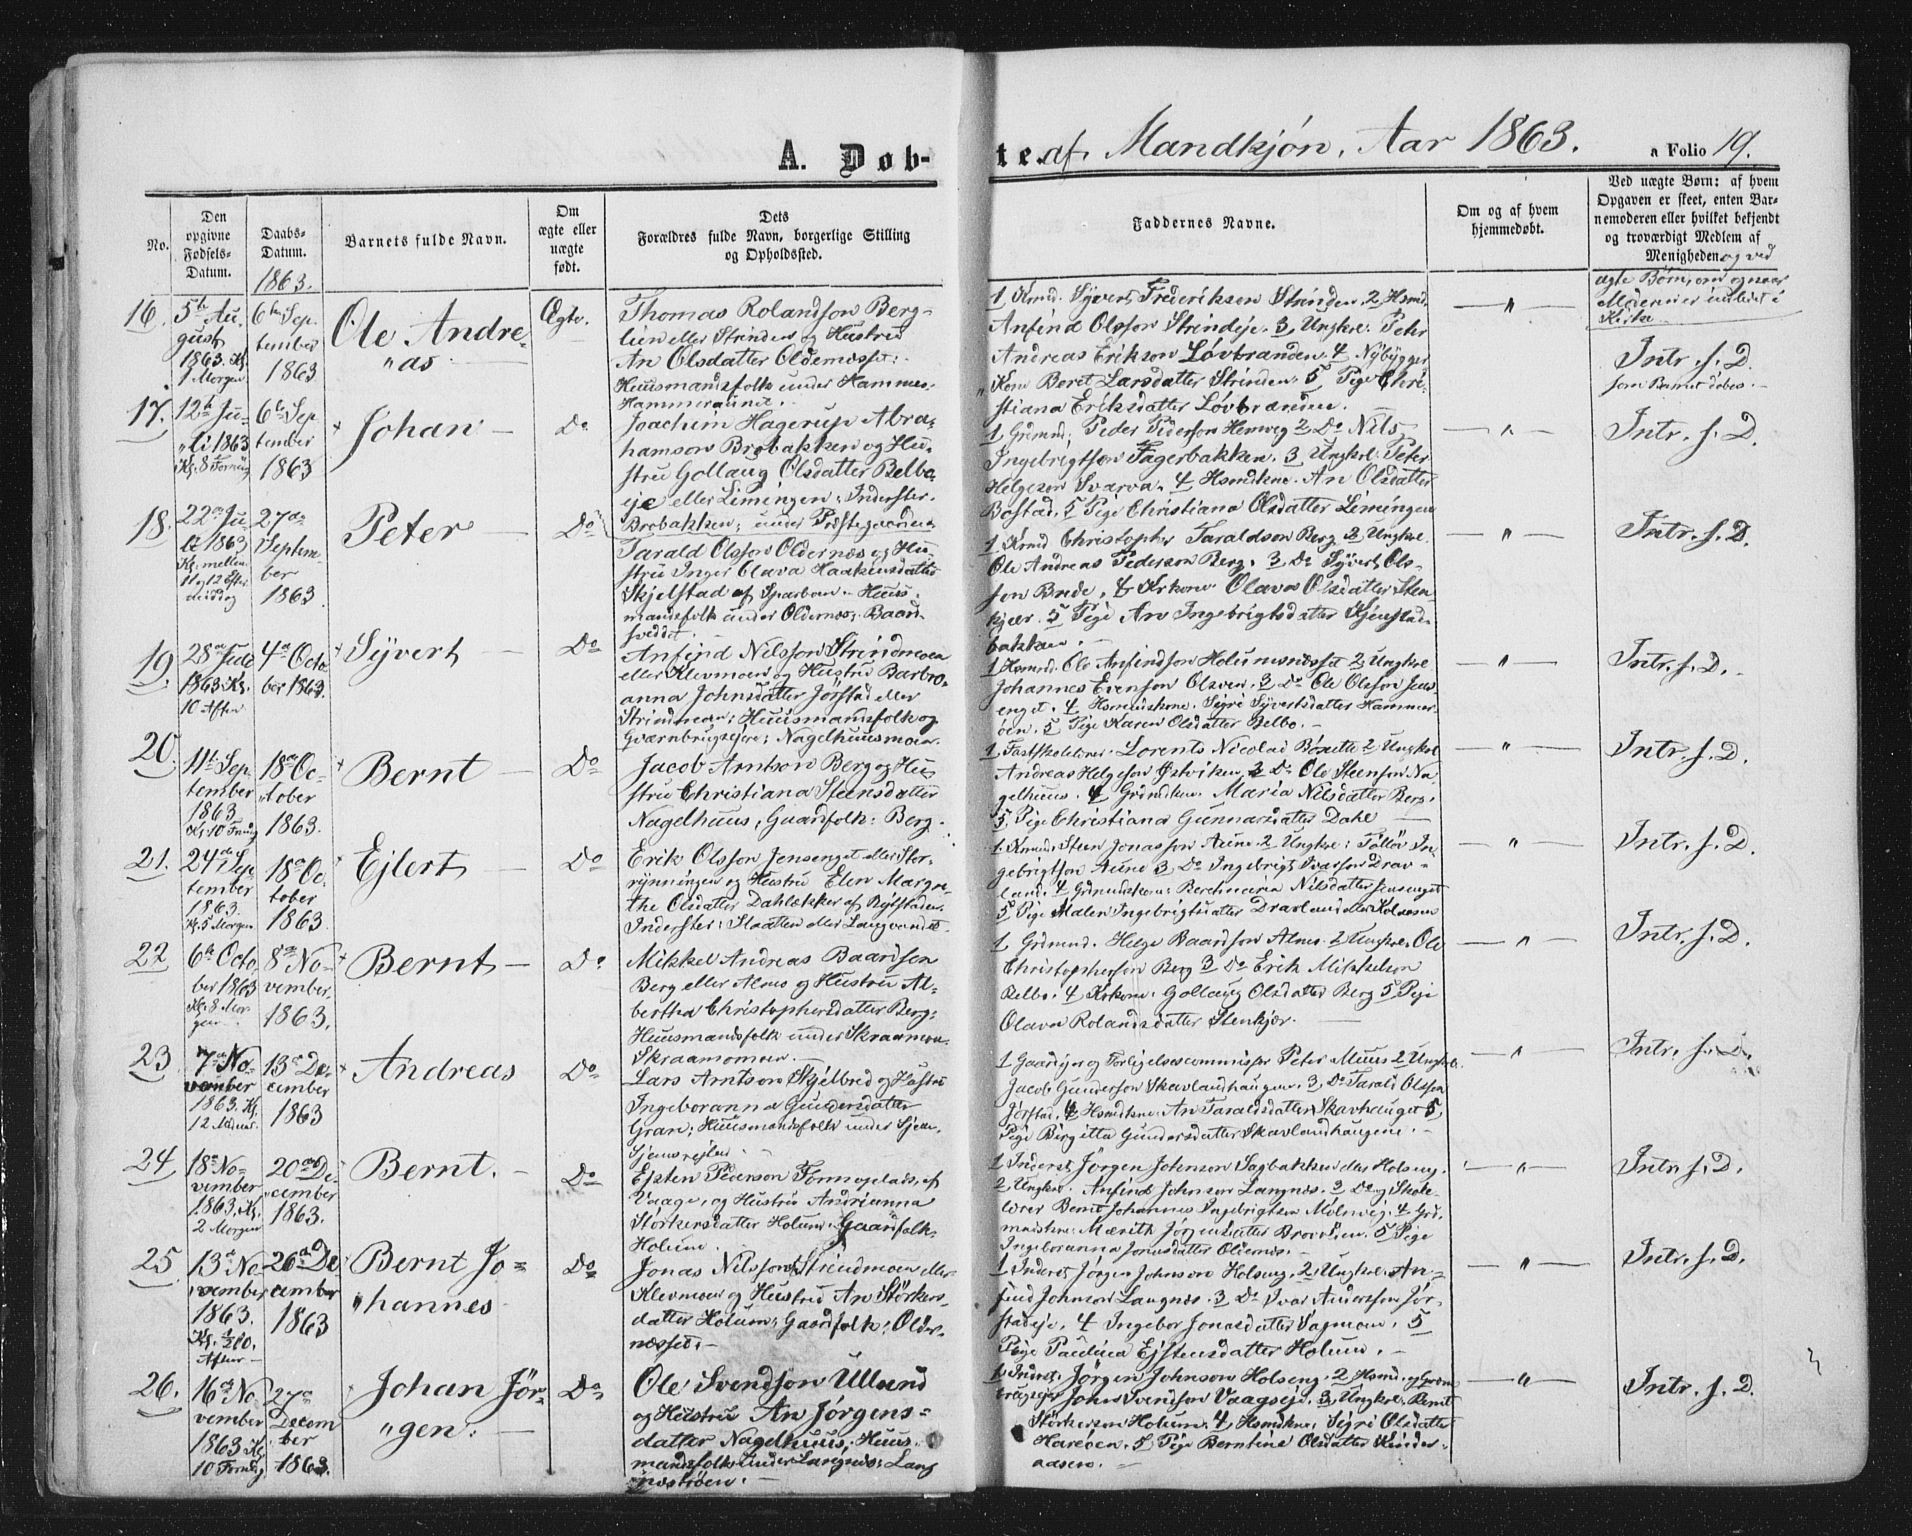 A. Døb-
te. af Mandkjøn, Aar 1863.
a Folio 19.
No.
Den opgivne Fødsels-Datum.
Daabs-Datum. 1863.
Barnets fulde Navn.
Om ægte eller uægte født.
Dets Forældres fulde Navn, borgerlige Stilling og Opholdssted.
Faddernes Navne.
Om og af hvem hjemmedøbt.
Ved uægte Børn: af hvem
Opgaven er skeet, enten Bar-
nemoderen eller hvilket bekjendt
og troværdigt Medlem af
Menigheden og ved
ægte Børn, om og naar
Moderen er indledt i
Kirke
16.
5te Au-
gust
1863. Kl.
1 Morgen
6te Sep-
tember
1863
Ole Andre-
"as
Ægte.
Thomas Rolandson Berg-
lien eller Strinden og Hustru
An Olsdatter Oldernæsset;
Huusmandsfolk under Hammer:
Hammeraunet.
1 Grmd. Syvert Frederikson Strinden, 2 Hsmd.
Anfind Olsson Strindeje. 3 Ungkrl. Peter
Andreas Erikson Løvbranden. 4 Nybygger
"Kone Beret Larsdatter Strinden. 5 Pige Chri-
stiana Eriksdatter Løvbrænden.
— " —
Intr. s. D.
som Barnet døbes. -
17.
12te Ju-
"li 1863
Kl. 8 Formidg
6te Sep-
tember
1863
Johan —
Do
Joachim Hagerup Abra-
hamson Brobakken og Hu-
stru Gollaug Olsdatter Belbo-
eje eller Limingen; Inderster.
Brobakken; under Præstegaarden
1 Grdmnd. Peder Pederson Hemveg 2 Do Nils
Ingebrigtson Fagerbakken. 3 Ungkrl. Peter
Helgeson Svarva. 4 Hsmdkne. An Olsdatter
Bostad. 5 Pige Christiana Olsdatter Limingen
— " —
Intr. s. D.
18.
22de Ju-
li 1863
Kl. mellem
11 og 12 Efter
middag
27de
Septem-
ber
1863
Peter —
Do
Tarald Olsson Oldernæs og Hu-
stru Inger Olava Haakensdatter
Skjelstad af Sparboen. Huus-
mandsfolk under Oldernæs; Baard-
svedet.
Ole Andreas Pederson Berg. 3 Do Syvert Ols-
son Bude. 4 Krkone Olava Olsdatter Sten-
kjær. 5 Pige An Ingebrigtsdatter Kjenstad-
bakken.
— " —
Intr. s. D.
19.
28de Juli
1863 Kl.
10 Aften
4de Octo-
ber 1863.
Syvert —
Do
Anfind Nilsson Strindmoen
eller Klevmoen og Hustru Barbro-
anna Johnsdatter Jørstad eller
Strindmoen; Huusmandsfolk og
Qværnbrugsejere; Nagelhuusmoen.
1 Hsmd. Ole Anfindson Holumsnæsset 2 Ungkrl
Johannes Evenson Olsven. 3 Do Ole Olsson Jens-
enget. 4 Hsmdskne. Sigri Syvertsdatter Hammer-
øen. 5 Pige Karen Olsdatter Belbo. -
— " —
Intr. s. D.
20.
11te Sep-
tember
1863
Kl. 10 Frmdg
18de Oc-
"tober
1863.
Bernt —
Do
Jacob Arntson Berg og Hu-
stru Christiana Steensdatter
Nagelhuus; Gaardfolk: Berg.
1 Fastskolelærer Lorents Nicolai 2 Ungkrl
Andreas Helgeson Østviken, 3 Do Ole Steenson Na-
gelhuus. 4 Grdmdkne. Maria Nilsdatter Berg.
5 Pige Christiana Gunnarsdatter Dahl —
— " —
Intr. s. D.
21.
24de Sep-
tember
1863.
Kl. 5 Morgen
18de Oc-
tober
1863.
Ejlert —
Do
Erik Olsson Jensenget eller Stor-
rynningen og Hustru Elen Margre-
the Olsdatter Dahlækker af Ryilstaden.
Inderster: Slaatten eller Langvandet.
1 Krmd. Steen Jonasson Aune 2 Ungkrl: Tollev In-
gebrigtson Aune 3 Do Ingebrigt Ivarson Drav-
land. 4 Grdmndskone: Berethmaria Nilsdatter Jensenget
5 Pige Malen Ingebrigtsdatter Dravland eller Kolaasen
— " —
Intr. s. D.
22
6te Octo-
ber 1863
Kl. 8 Mor-
gen
8de No-
vember.
1863.
Bernt —
Do
Mikkel Andreas Baardsen
Berg eller Alnes og Hustru Al-
bertha Christophersdatter Berg;
Huusmandsfolk under Skraamoen.
Skraamomoen. —
1 Grdmnd. Helge Baardson Alnes. 2 Ungkrl. Ole
Christopherson Berg 3 Do Erik Mikkelson
Belbo. 4 Krkone. Gollaug Olsdatter Berg 5 Pige
Olava Rolandsdatter Stenkjær. —
— " —
Intr. s. D.
23.
7de No-
vember
1863. Kl.
12 Midnat.
13de De-
cember
1863
Andreas
Do
Lars Arntson Skjelbred og Hustru
Ingeboranna Gundersdatter
Gran; Huusmandsfolk under Sjem.
1 Gaardejer og Forligelsescommissær Peter Muus 2 Ungkrl.
Jacob Gunderson Skavlandhaugen. 3 Do Tarald Olsson
Jørstad. 4 Hsmdkne. An Taraldsdatter Skavhauget 5
Pige Birgitta Gundersdatter Skavlandhaugene. —
— " —
Intr. s. D.
24
18de No-
vember
1863. Kl.
2 Morgen
20de De-
"cember
1863.
Bernt. —
Do
Ejsten Pederson Fønnoplads af
og Hustru Andrianna
Størkersdatter Holum. Gaardfolk
Holum.
1 Inderst Jörgen Johnson Sagbakken eller Holseng.
2 Ungkrl. Anfind Johnson Langnæs. 3 Do og Skole-
lærer Bernt Johannes Ingebrigtson Molnveg. 4 Grd-
mndskne. Marith Jörgensdatter 5 Pige
Ingeboranna Jonasdatter Oldernæs. —
— " —
Intr. s. D.
25
13de No-
vember
1863.
Kl. ½10.
Aften —
26de De-
cember
1863
Bernt Jo-
"hannes
Do
Jonas Nilsson Strindmoen eller
Klevmoen og Hustru An Störkers-
datter Holum; Gaardfolk; Older-
næsset. —
1 Inderst Jörgen Johnson Holseng, 2 Ungkrl. An-
find Johnson Langnæs. 3 Do Ivar Anderson Jør-
stadeje. 4 Ingebor Jonasdatter Sagmoen. 5
Pige Paulina Ejstensdatter Holum. —
— " —
Intr. s. D.
26.
16de No-
vember
1863 Kl.
10 Formdg
27de
Decem-
ber
1863.
Johan Jör-
"gen. —
Do
Ole Svendson Ulland
og Hustru An Jørgens-
datter Nagelhuus; Huus-
mandsfolk under Langnæs; Lang-
næströen. —
1 Inderst. Jörgen Johnson Holseng. 2 Hsmd. og Qværn-
brugsejer John Svendson Vaagseje. 3 Ungkrl. Bernt
Störkerson Holum. 4 Hsmdkne. Sigri Olsdatter
Harøen. 5 Pige Berntine Olsdatter Kinder-
aasen. —
— " —
Intr. s. D.